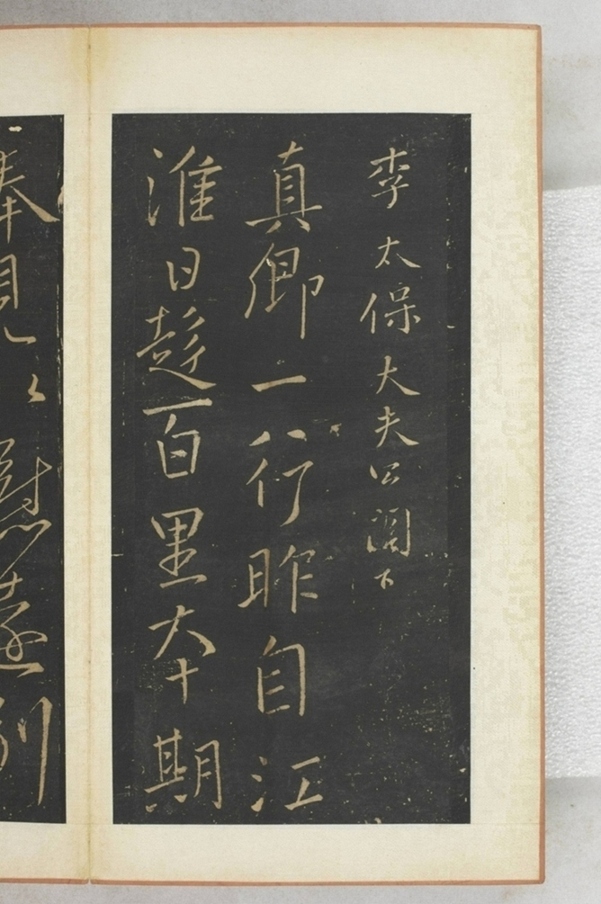 李太保大夫公閣下
真卿一行昨自江
淮日趍百里夲期
奉見以慰遠別